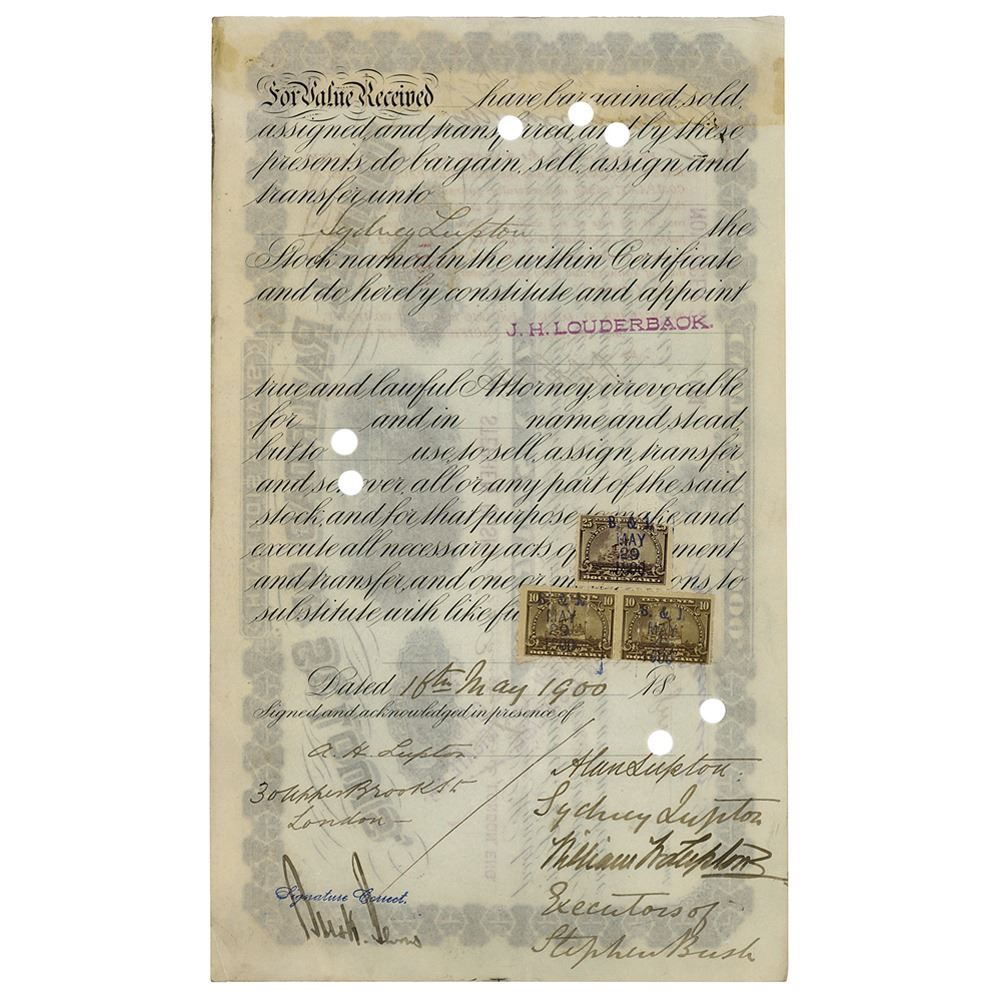 For Value Received have bargained, sold,
assigned, and transferred, and by these
presents do bargain, sell, assign and
transfer unto
Sydney Lupton the
Stock named in the within Certificate
and do hereby constitute and appoint
J. H. LOUDERBACK.
true and lawful Attorney, irrevocable
for and in name and stead,
but to use, to sell, assign, transfer
and set over, all or any part of the said
stock, and for that purpose to make and
execute all necessary acts of ment
and transfer, and one or ons to
substitute with like
25 25
B. & I.
MAY
29
1900
DOCUMENTARY
10 10 10 TEN CENTS 10
B. & I. B. & I.
MAY MAY
29
1900
DOCUMENTARY DOCUMENTARY
Dated 16th May 1900 18
Signed and acknowledged in presence of
A. H. Lupton
30 Upper Brook St
London
Alan Lupton
Sydney Lupton
William Lupton
Executors of
Stephen Bush
Signature Correct.